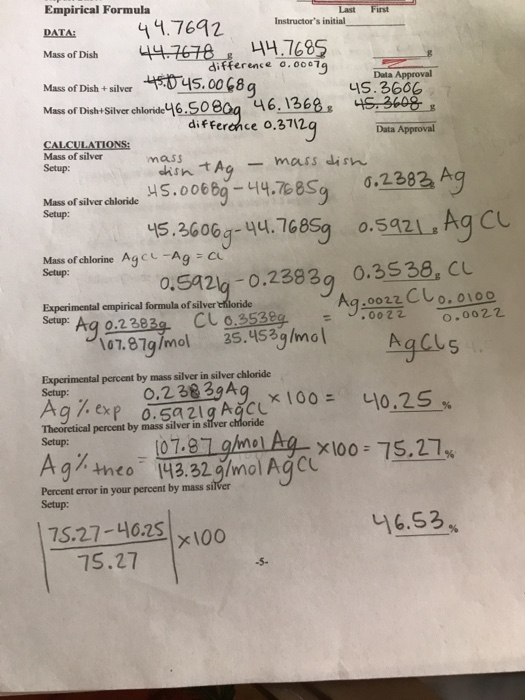 Empirical Formula Last First
Instructor's initial
DATA: 44.7692
Mass of Dish 44.7678 g 44.7685 g
difference 0.0007g
Data Approval
Mass of Dish + silver 45.0 45.0068g 45.3606
Mass of Dish+Silver chloride 46.5080g 46.1368 g 45.3608 g
difference 0.3712g Data Approval
CALCULATIONS:
Mass of silver
Setup: mass dish + Ag - mass dish 0.2383 g Ag
45.0068g - 44.7685g
Mass of silver chloride
Setup: 45.3606g - 44.7685g 0.5921 g AgCl
Mass of chlorine AgCl - Ag = Cl
Setup: 0.5921g - 0.2383g 0.3538 g Cl
Experimental empirical formula of silver chloride
Setup: Ag 0.2383g Cl 0.3538g = Ag .0022 Cl 0.0100
107.87g/mol 35.453g/mol .0022 0.0022
AgCl5
Experimental percent by mass silver in silver chloride
Setup: 0.2383gAg x 100 = 40.25 %
Ag % exp 0.5921gAgCl
Theoretical percent by mass silver in silver chloride
Setup: 107.87 g/mol Ag x100 = 75.27 %
Ag% theo = 143.32 g/mol AgCl
Percent error in your percent by mass silver
Setup:
75.27-40.25 x100 46.53 %
75.27
-5-